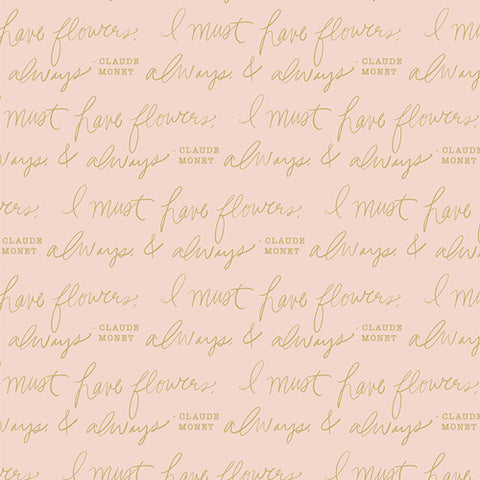 I must
have flowers, I must have flowers,
always - CLAUDE MONET always, & always - CLAUDE MONET al
must have flowers, I must have flowers,
ways, & always - CLAUDE MONET always, & always - CLAUDE MONET
flowers, I must have flowers, I must have
CLAUDE MONET always, & always - CLAUDE MONET always, & al
have flowers, I must have flowers, I must
always - CLAUDE MONET always, & always - CLAUDE MONET al
must have flowers, I must have flowers,
ways, & always - CLAUDE MONET always, & always - CLAUDE MONET
flowers, I must have flowers, I must have